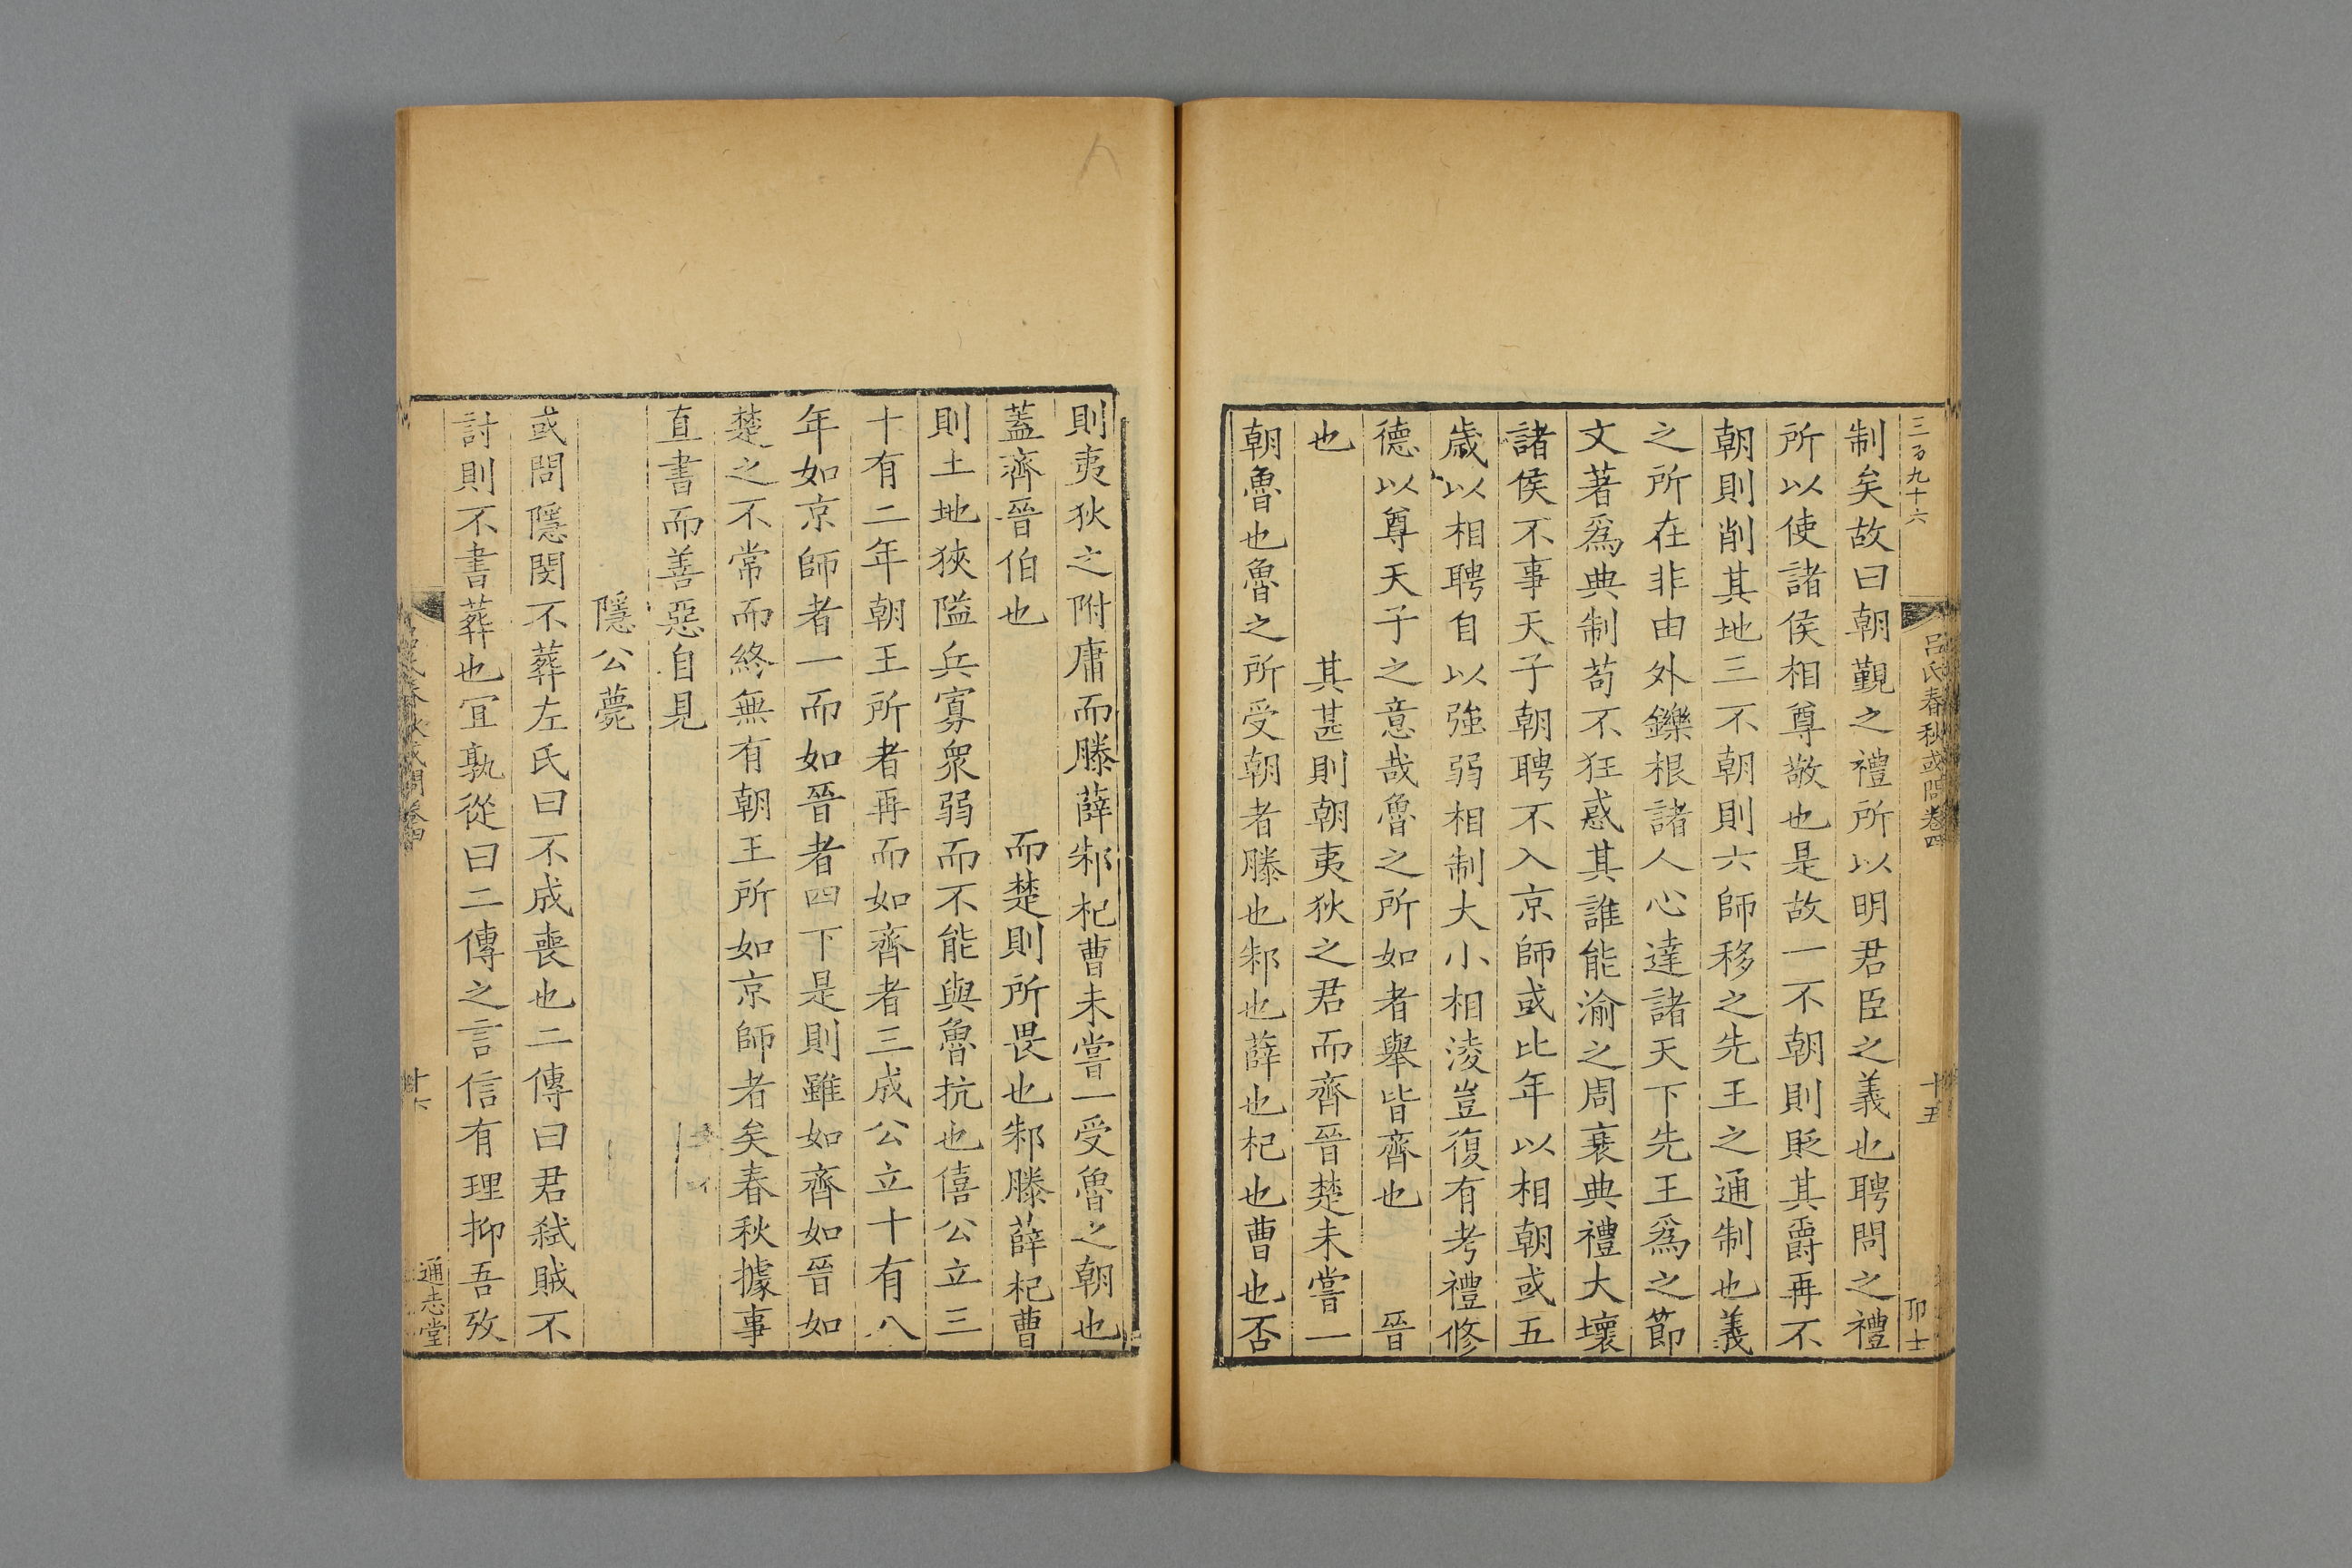 三百九十六
呂氏春秋或問卷四
十五
卯士
制矣故曰朝覲之禮所以明君臣之義也聘問之禮
所以使諸侯相尊敬也是故一不朝則貶其爵再不
朝則削其地三不朝則六師移之先王之通制也義
之所在非由外鑠根諸人心達諸天下先王爲之節
文著爲典制苟不狂惑其誰能渝之周衰典禮大壞
諸侯不事天子朝聘不入京師或比年以相朝或五
歲以相聘自以強弱相制大小相淩豈復有考禮修
德以尊天子之意哉魯之所如者舉皆齊也　晉
也　其甚則朝夷狄之君而齊晉楚未嘗一
朝魯也魯之所受朝者滕也邾也薛也杞也曹也否
則夷狄之附庸而滕薛邾杞曹未嘗一受魯之朝也
蓋齊晉伯也　而楚則所畏也邾滕薛杞曹
則土地狹隘兵寡衆弱而不能與魯抗也僖公立三
十有二年朝王所者再而如齊者三成公立十有八
年如京師者一而如晉者四下是則雖如齊如晉如
楚之不常而終無有朝王所如京師者矣春秋據事
直書而善惡自見
隱公薨
或問隱閔不葬左氏曰不成喪也二傳曰君弒賊不
討則不書葬也宜孰從曰二傳之言信有理抑吾攷
春秋或問卷四
十六
通志堂